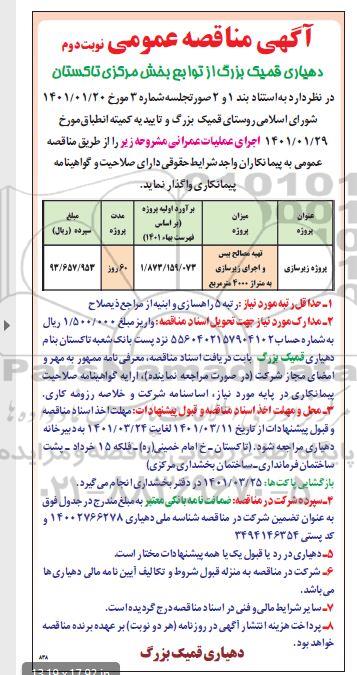 آگهی مناقصه عمومی نوبت دوم
دهیاری قمیک بزرگ از توابع بخش مرکزی تاکستان
در نظر دارد به استناد بند ۱ و ۲ صورتجلسه شماره ۳ مورخ ۱۴۰۱/۰۱/۲۰
شورای اسلامی روستای قمیک بزرگ و تاییدیه کمیته انطباق مورخ
۱۴۰۱/۰۱/۲۹ اجرای عملیات عمرانی مشروحه زیر را از طریق مناقصه
عمومی به پیمانکاران واجد شرایط حقوقی دارای صلاحیت و گواهینامه
پیمانکاری واگذار نماید.
عنوان پروژه میزان پروژه برآورد اولیه پروژه (بر اساس فهرست بهاء ۱۴۰۱) مدت پروژه مبلغ سپرده (ریال)
پروژه زیرسازی تهیه مصالح بیس و اجرای زیرسازی به متراژ ۴۰۰۰ مترمربع ۱/۸۷۳/۱۵۹/۰۷۳ ۶۰ روز ۹۳/۶۵۷/۹۵۳
۱_حداقل رتبه مورد نیاز: رتبه ۵ راهسازی و ابنیه از مراجع ذیصلاح
۲_مدارک مورد نیاز جهت تحویل اسناد مناقصه: واریز مبلغ ۱/۵۰۰/۰۰۰ ریال
به شماره حساب ۵۵۶۰۴۰۲۱۵۷۹۰۴۱۰۲ نزد پست بانک شعبه تاکستان بنام
دهیاری قمیک بزرگ بابت دریافت اسناد مناقصه، معرفی نامه ممهور به مهر و
امضای مجاز شرکت (در صورت مراجعه نماینده)، ارایه گواهینامه صلاحیت
پیمانکاری در پایه مورد نیاز، اساسنامه شرکت و خلاصه رزومه کاری.
۳_محل و مهلت اخذ اسناد مناقصه و قبول پیشنهادات: مهلت اخذ اسناد مناقصه
و قبول پیشنهادات از تاریخ ۱۴۰۱/۰۳/۱۱ لغایت ۱۴۰۱/۰۳/۲۴ به دبیرخانه
دهیاری مراجعه شود. (تاکستان_خ امام خمینی(ره)_فلکه ۱۵ خرداد_پشت
ساختمان فرمانداری_ساختمان بخشداری مرکزی)
بازگشایی پاکت‌ها: ۱۴۰۱/۰۳/۲۵ در دفتر بخشداری انجام می‌گیرد.
۴_سپرده شرکت در مناقصه: ضمانت نامه بانکی معتبر به مبلغ مندرج در جدول فوق
به عنوان تضمین شرکت در مناقصه شناسه ملی دهیاری ۱۴۰۰۲۷۶۶۲۷۸ و
کد پستی ۳۴۹۴۱۴۶۳۵۴
۵_دهیاری در رد یا قبول یک یا همه پیشنهادات مختار است.
۶_شرکت در مناقصه به منزله قبول شروط و تکالیف آیین نامه مالی دهیاری ها
می‌باشد.
۷_سایر شرایط مالی و فنی در اسناد مناقصه درج گردیده است.
۸_پرداخت هزینه انتشار آگهی در روزنامه (هر دو نوبت) بر عهده برنده مناقصه
خواهد بود.
دهیاری قمیک بزرگ
۸۳۸
13.19 x 17.92 in